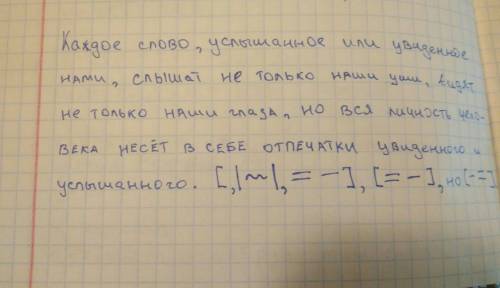 Каждое слово, услышанное или увиденное
нами, слышат не только наши уши, видят
не только наши глаза, но вся личность чело-
века несёт в себе отпечатки увиденного и
услышанного. [,|~|,=-], [=-], но [-=]